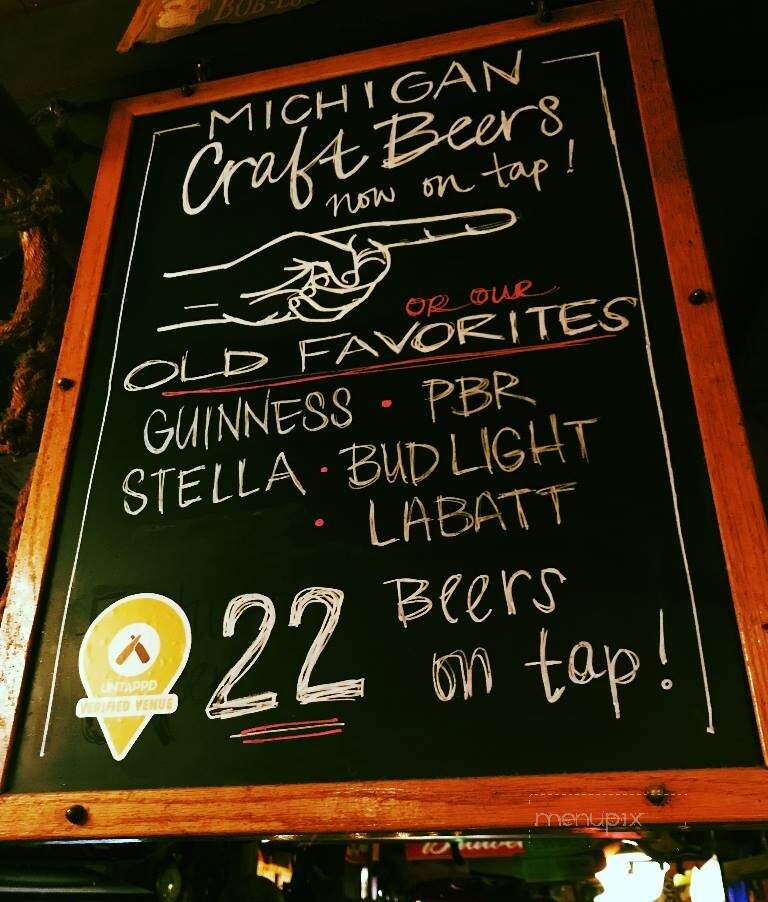 BOB-LO
MICHIGAN
Craft Beers
now on tap!
OR OUR
OLD FAVORITES
GUINNESS • PBR
STELLA • BUD LIGHT
• LABATT
22 Beers
on tap!
UNTAPPD
VERIFIED VENUE
menupix